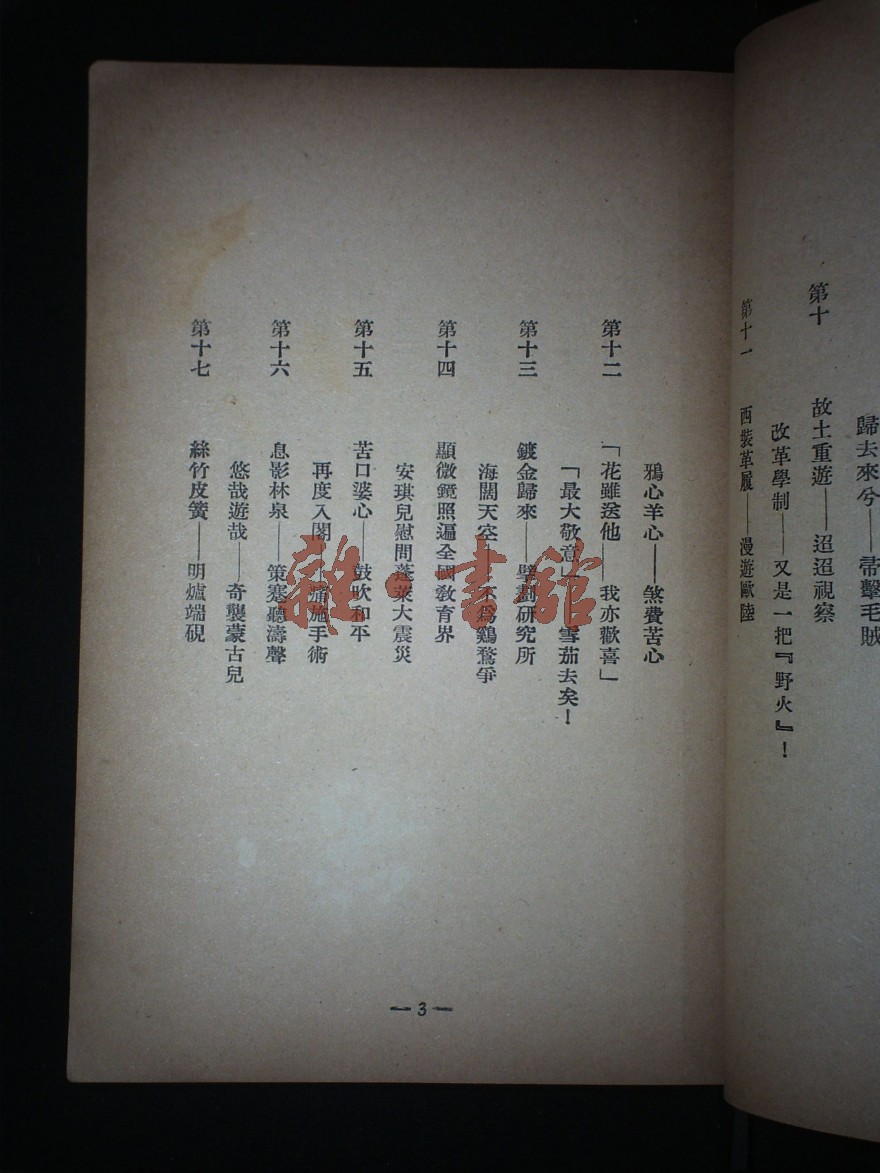 歸去來兮——帚擊毛賊
第十 故土重遊——迢迢視察
改革學制——又是一把『野火』！
第十一 西裝革履——漫遊歐陸
鴉心羊心——煞費苦心
第十二 「花雖送他——我亦歡喜」
「最大敬意」——雪茄去矣！
第十三 鍍金歸來——擘劃研究所
海闊天空——不為鷄鶩爭
第十四 顯微鏡照遍全國教育界
安琪兒慰問蓬萊大震災
第十五 苦口婆心——鼓吹和平
再度入閣——痛施手術
第十六 息影林泉——策蹇聽濤聲
悠哉遊哉——奇襲蒙古兒
第十七 絲竹皮簧——明爐端硯
—3—
雜·書館